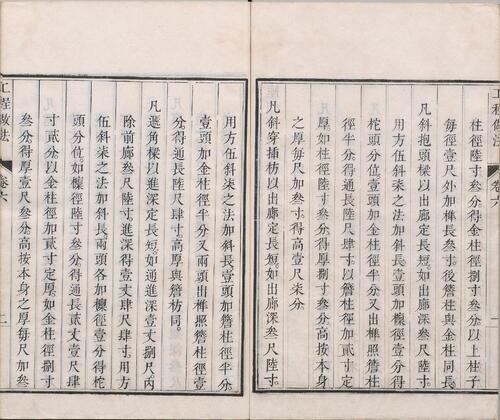 工程做法
柱徑陸寸叁分得金柱徑捌寸叁分以上柱子
每徑壹尺外加榫長叁寸後簷柱與金柱同長
凡斜抱頭樑以出廊定長短如出廊深叁尺陸寸
用方伍斜柒之法加斜長壹頭加檁徑壹分得
柁頭分位壹頭加金柱徑半分又出榫照簷柱
徑半分得通長陸尺肆寸以簷柱徑加貳寸定
厚如柱徑陸寸叁分得厚捌寸叁分高按本身
之厚每尺加叁寸得高壹尺柒分
凡斜穿插枋以出廊定長短如出廊深叁尺陸寸
用方伍斜柒之法加斜長壹頭加簷柱徑半分
壹頭加金柱徑半分又兩頭出榫照簷柱徑壹
分得通長陸尺肆寸高厚與簷枋同
凡遞角樑以進深定長短如通進深壹丈捌尺內
除前廊叁尺陸寸進深得壹丈肆尺肆寸用方
伍斜柒之法加斜長兩頭各加檁徑壹分得柁
頭分位如檁徑陸寸叁分得通長貳丈壹尺肆
寸貳分以金柱徑加貳寸定厚如金柱徑捌寸
叁分得厚壹尺叁分高按本身之厚每尺加叁
工程做法 卷六 二